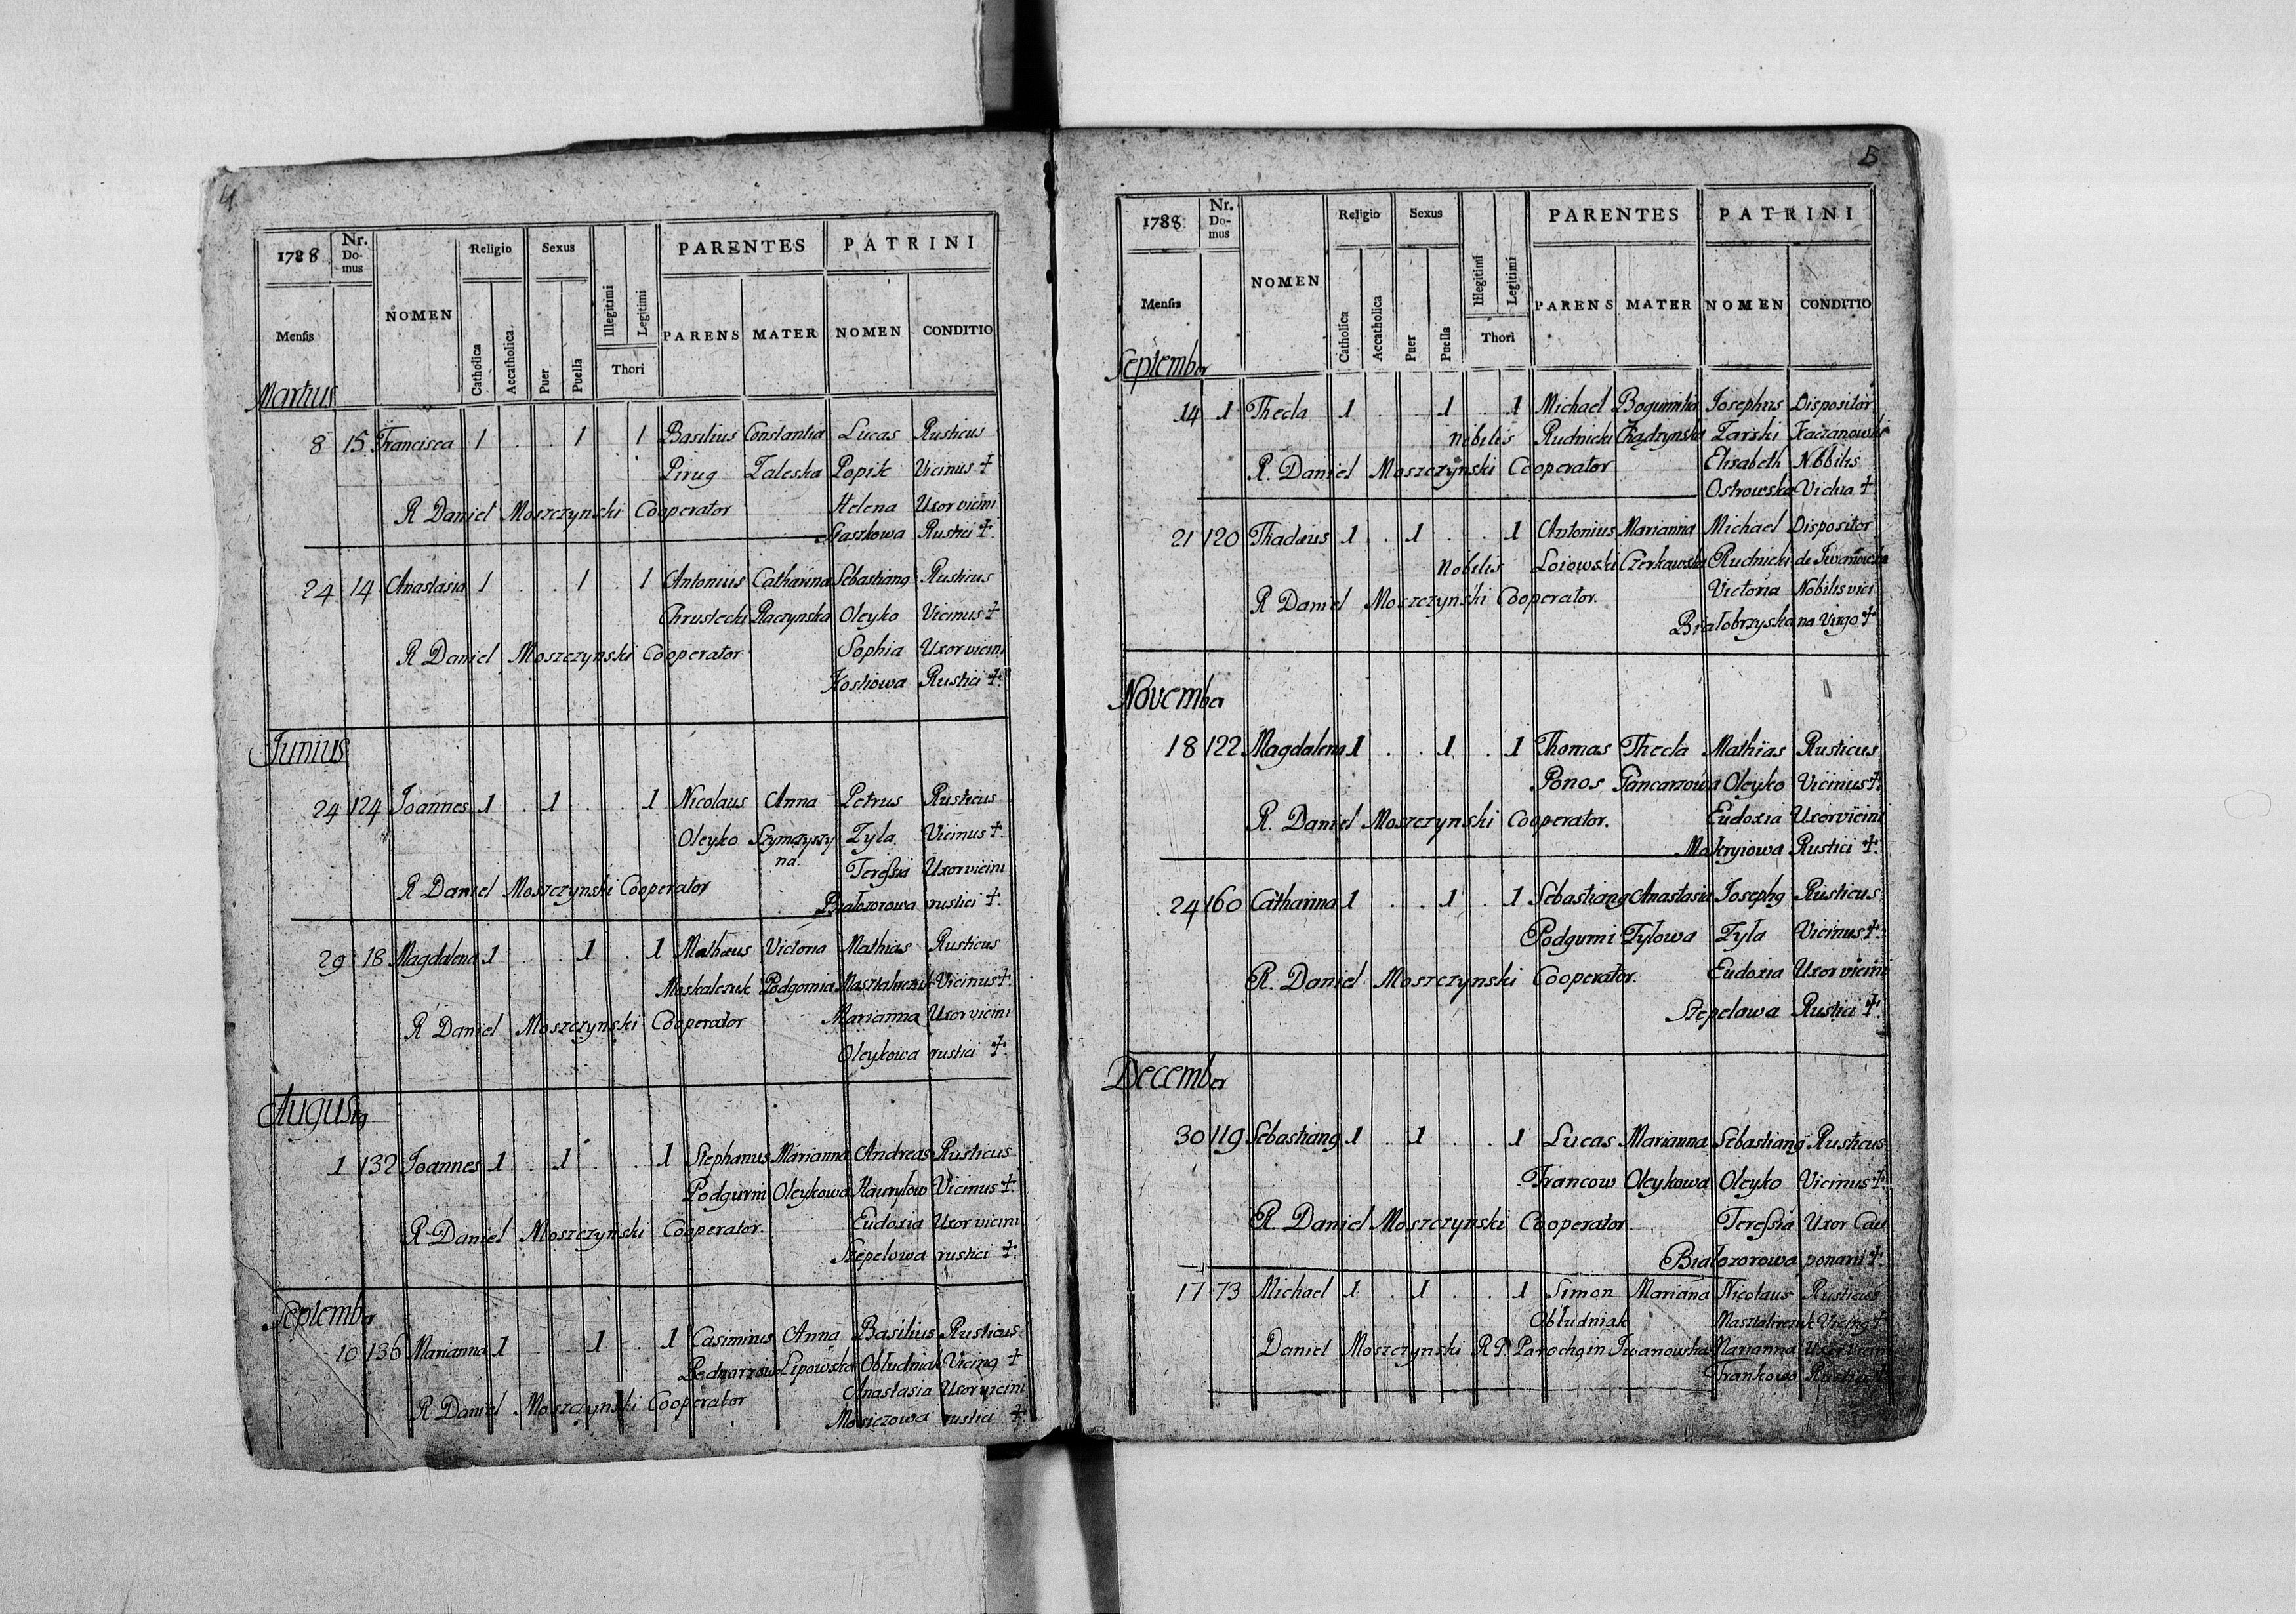 4
1788 Nr. Domus NOMEN Religio Sexus Illegitimi Legitimi PARENTES PATRINI
Mensis Catholica Accatholica Puer Puella Thori PARENS MATER NOMEN CONDITIO
Martius
8 15 Francisca 1 . . 1 . 1 Basilius Constantia Lucas Rusticus
Pirug Zaleska Popik Vicinus +
R Daniel Moszczynski Cooperator Helena Uxor vicini
Staszkowa Rustici +.
24 14 Anastasia 1 . . 1 . 1 Antonius Catharina Sebastiang Rusticus
Chrustecki Raczynska Oleyko Vicinus +
R Daniel Moszczynski Cooperator Sophia Uxor vicini
Kostiowa Rustici +.
Junius
24 124 Joannes 1 . 1 . . 1 Nicolaus Anna Petrus Rusticus
Oleyko Szymczyszy Zyla Vicinus +.
na. Teressia Uxor vicini
R Daniel Moszczynski Cooperator
Białozorowa rustici +.
29 18 Magdalena 1 . . 1 . 1 Mathæus Victoria Mathias Rusticus
Moskalczuk Podgornia Masztalerczuk Vicinus +.
R Daniel Moszczynski Cooperator Marianna Uxor vicini
Oleykowa rustici +.
Augustg
1 132 Joannes 1 . 1 . . 1 Stephanus Marianna Andreas Rusticus
Podgurni Oleykowa Hauryłow Vicinus +.
R Daniel Moszczynski Cooperator. Eudoxia Uxor vicini
Szepelowa rustici +.
September
10 136 Marianna 1 . . 1 . 1 Casimirus Anna Basilius Rusticus
Lipowska Obłudniak Vicing +
R Daniel Moszczynski Cooperator Anastasia Uxor vicini
Mosiczowa rustici +.
5
1788 Nr. Domus NOMEN Religio Sexus Illegitimi Legitimi PARENTES PATRINI
Mensis Catholica Accatholica Puer Puella Thori PARENS MATER NOMEN CONDITIO
September
14 1 Thecla 1 . . 1 . 1 Michael Bogumiła Josephus Dispositor
nobilis Rudnicki Zarski Kaczanowski
R. Daniel Moszczynski Cooperator Elisabeth Nobilis
Ostrowska Vidua +
21 120 Thadæus 1 . 1 . . 1 Antonius Marianna Michael Dispositor
nobilis Loiowski Czerkawska Rudnicki de Iwanowka
R Daniel Moszczynski Cooperator. Victoria Nobilis vici
Białobrzyska na Virgo +
November
18 122 Magdalena 1 . . 1 . 1 Thomas Thecla Mathias Rusticus
Ponos Gancarzowa Oleyko Vicinus +.
R. Daniel Moszczynski Cooperator. Eudoxia Uxor vicini
Mokryiowa Rustici +.
24 160 Catharina 1 . . 1 . 1 Sebastiang Anastasia Josephg Rusticus
Podgurni Zylowa Zyla Vicinus +.
R. Daniel Moszczynski Cooperator. Eudoxia Uxor vicini
Szepelawa Rustici +.
December
30 119 Sebastiang 1 . 1 . . 1 Lucas Marianna Sebastiang Rusticus
Francow Oleykowa Oleyko Vicinus +.
R. Daniel Moszczynski Cooperator. Teressia Uxor Cau
Białozorowa ponarii +.
17 73 Michael 1 . 1 . . 1 Simon Mariana Nicolaus Rusticus
Obłudniak Masztalerczuk Vicing +
Daniel Moszczynski R P. Parochg in Iwanowka Marianna Uxor vicini
Frankowa Rustici +